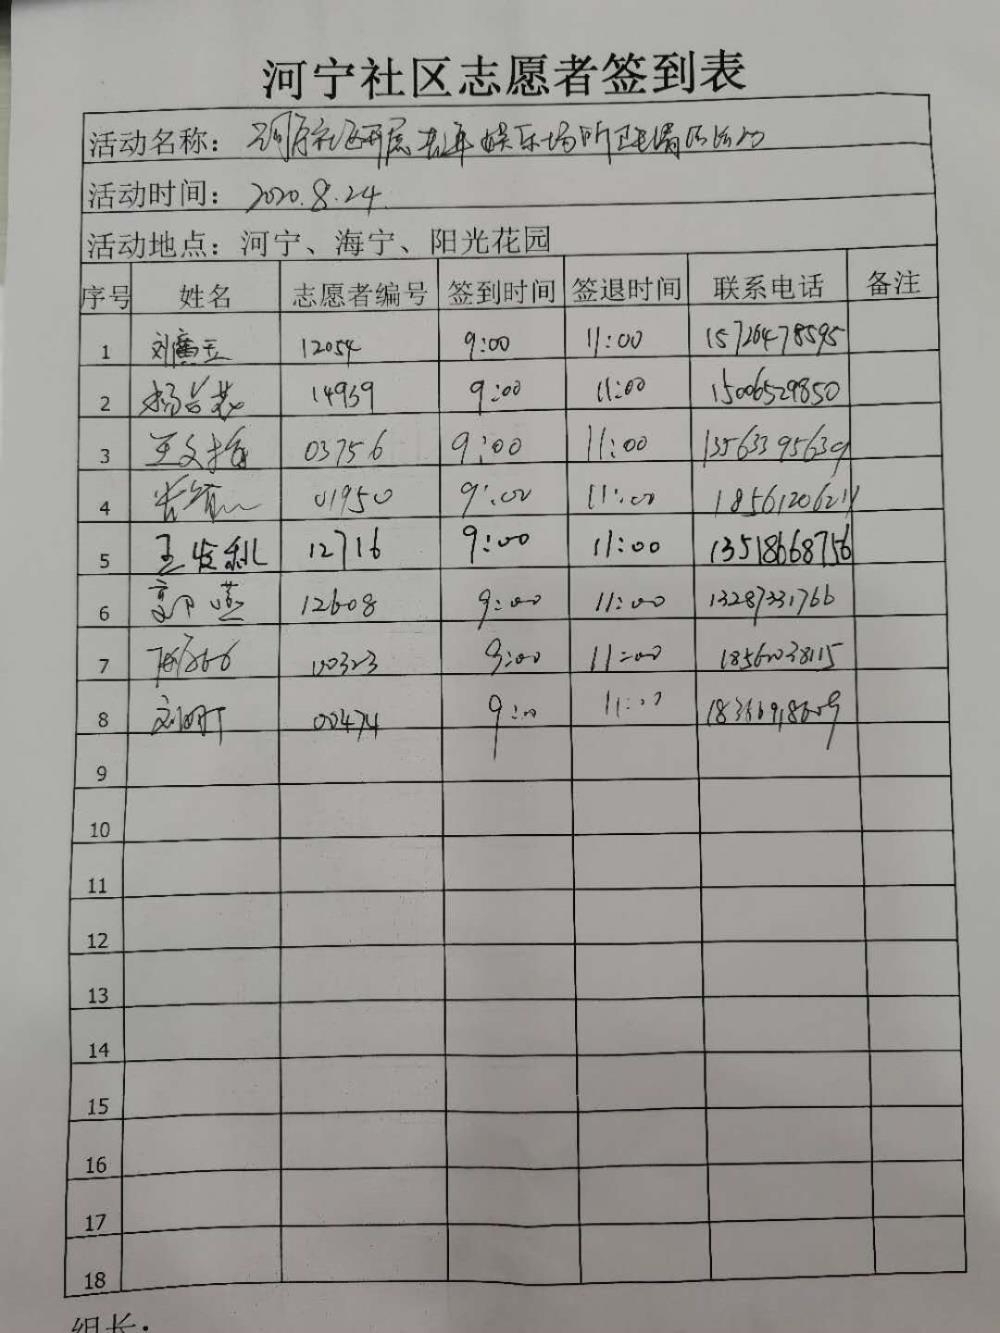 河宁社区志愿者签到表
活动名称：河宁社区开展老年娱乐场所卫生清洁活动
活动时间：2020.8.24.
活动地点：河宁、海宁、阳光花园
序号 姓名 志愿者编号 签到时间 签退时间 联系电话 备注
1 刘廣玉 12054 9:00 11:00 15726478595
2 杨 14939 9:00 11:00 15006529850
3 王文梅 03756 9:00 11:00 13563395639
4 01950 9:00 11:00
5 王发利 12716 9:00 11:00 13518668756
6 郭燕 12608 9:00 11:00 13287331766
7 00323 9:00 11:00 18562038115
8 刘明 00474 9:00 11:00
9
10
11
12
13
14
15
16
17
18
组长：